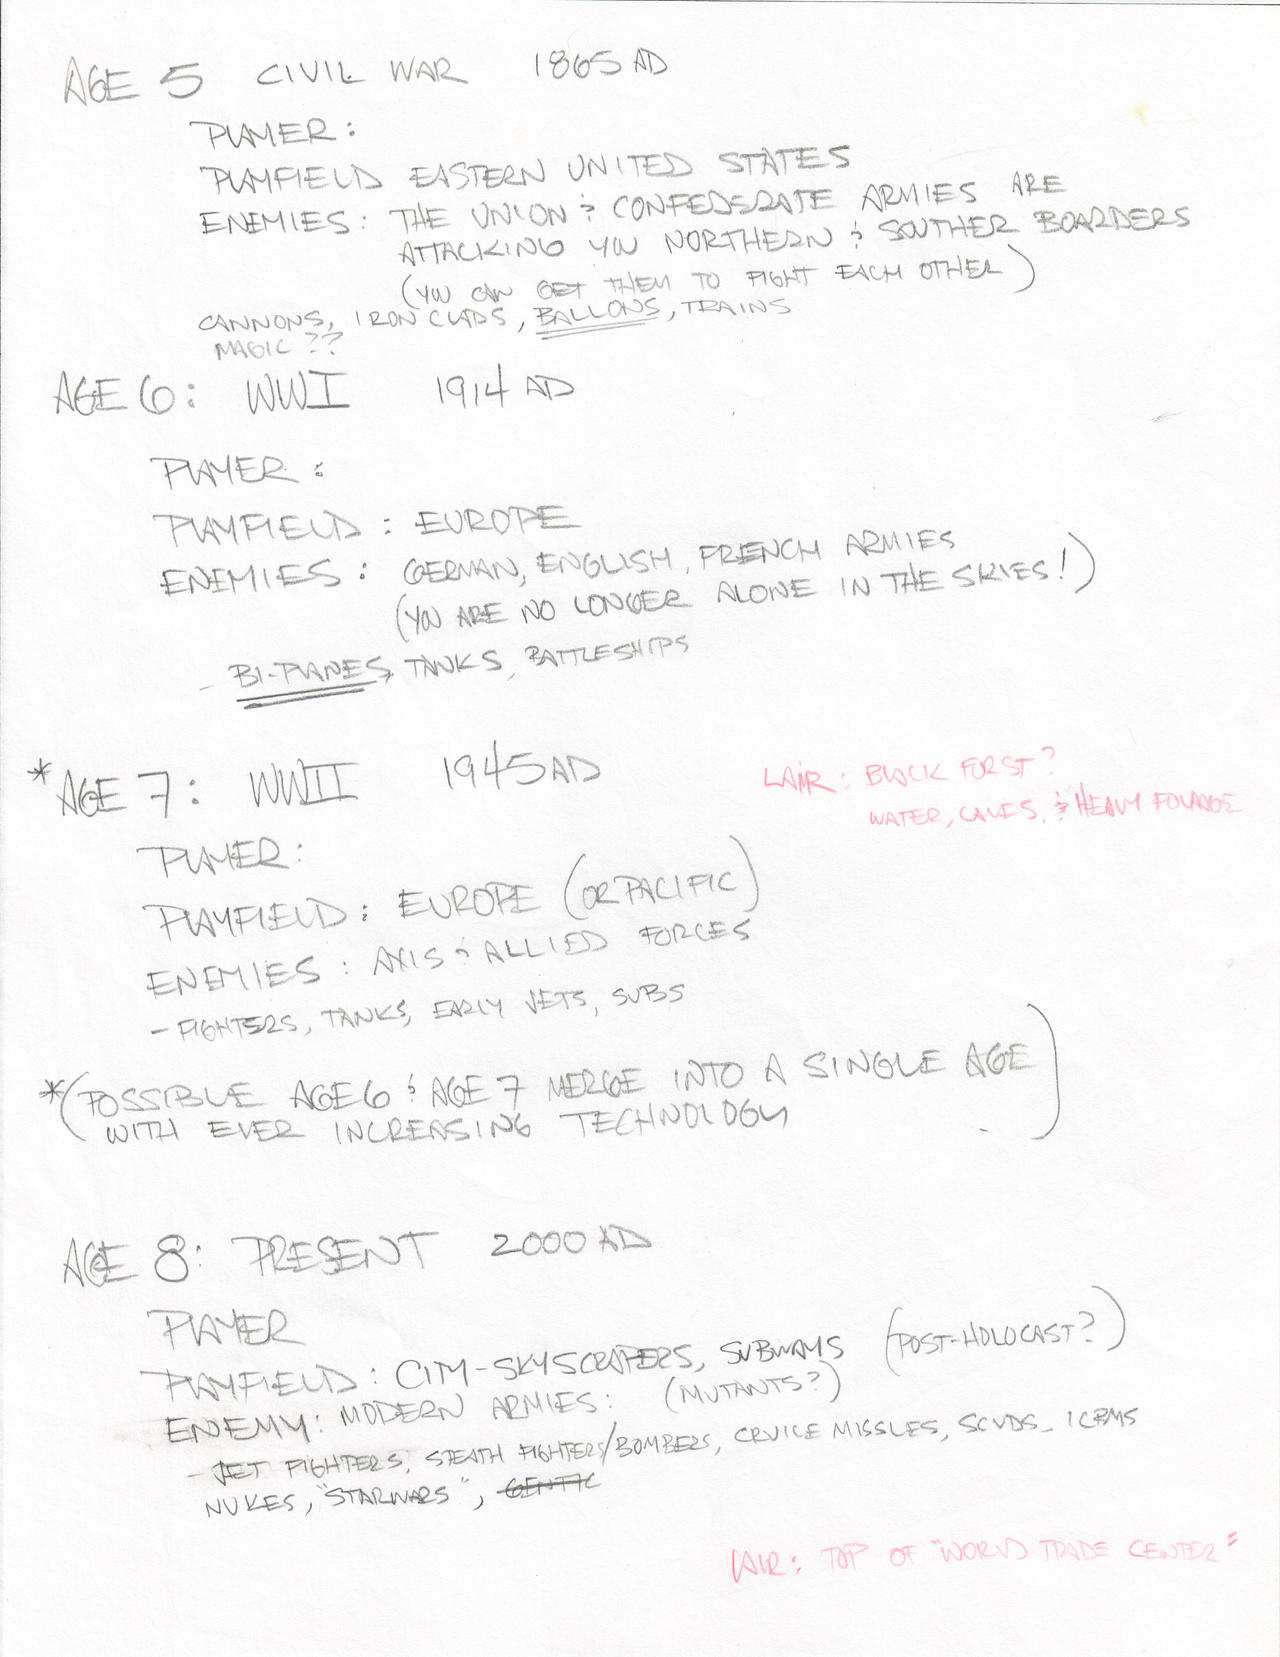 AGE 5 CIVIL WAR 1865 AD
PLAYER:
PLAYFIELD EASTERN UNITED STATES
ENEMIES: THE UNION & CONFEDERATE ARMIES ARE
ATTACKING YOU NORTHERN & SOUTHER BOARDERS
(YOU CAN GET THEM TO FIGHT EACH OTHER)
CANNONS, IRON CLADS, BALLONS, TRAINS
MAGIC ??
AGE 6: WWI 1914 AD
PLAYER:
PLAYFIELD: EUROPE
ENEMIES: GERMAN, ENGLISH, FRENCH ARMIES
(YOU ARE NO LONGER ALONE IN THE SKIES!)
- BI-PLANES, TANKS, BATTLESHIPS
*AGE 7: WWII 1945 AD
LAIR: BLACK FORST?
WATER, CAVES, & HEAVY FOLIAGE
PLAYER:
PLAYFIELD: EUROPE (OR PACIFIC)
ENEMIES: AXIS & ALLIED FORCES
- FIGHTERS, TANKS, EARLY JETS, SUBS
*(POSSIBLE AGE 6 & AGE 7 MERGE INTO A SINGLE AGE
WITH EVER INCREASING TECHNOLOGY)
AGE 8: PRESENT 2000 AD
PLAYER
PLAYFIELD: CITY-SKYSCRAPERS, SUBWAYS (POST-HOLOCAST?)
ENEMY: MODERN ARMIES: (MUTANTS?)
- JET FIGHTERS, STEATH FIGHTERS/BOMBERS, CRUICE MISSLES, SCUDS, ICBMS
NUKES, "STARWARS",
LAIR: TOP OF "WORLD TRADE CENTER"